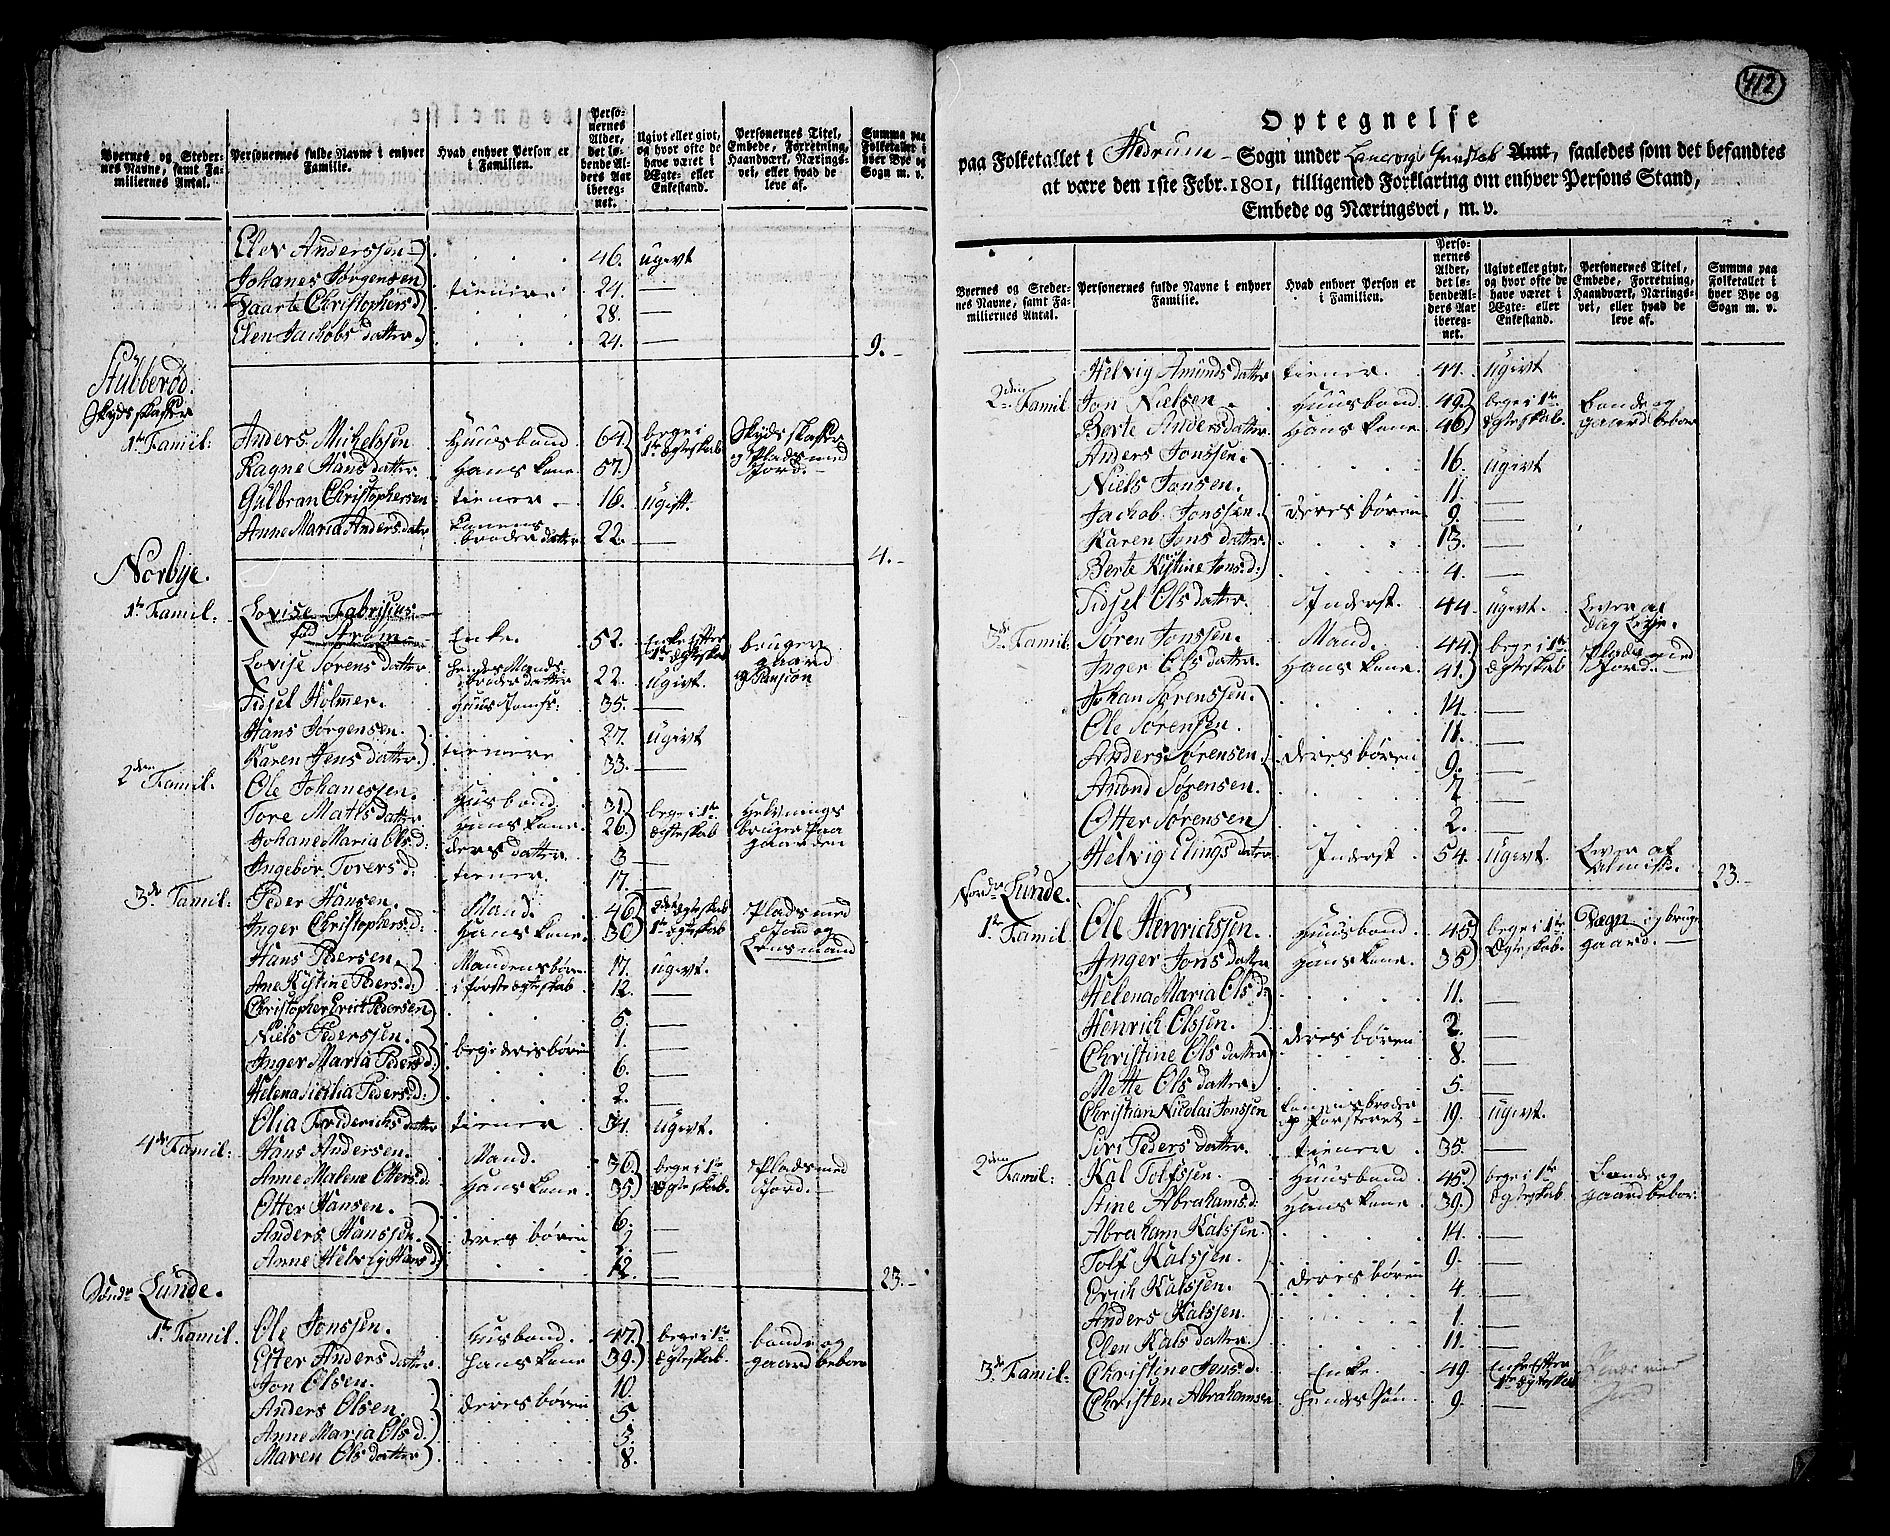 Byernes og Steder-
nes Navne, samt Fa-
miliernes Antal.
Personernes fulde Navne i enhver
Familie.
Hvad enhver Person er
i Familien.
Perso-
nernes
Alder,
det lø-
bende Al-
ders Aar
ibereg-
net.
Ugivt eller givt,
og hvor ofte de
have været i
Ægte- eller
Enkestand.
Personernes Titel,
Embede, Forretning,
Haandværk, Nærings-
vei, eller hvad de
leve af.
Summa paa
Folketallet i
hver Bye og
Sogn m. v.
Elev Anderssen 46. ugivt
Johanes Jørgensen tienere 24. —
Vaarte Christophers d 28. —
Elen Jachobs datter 24. — 9.
Stulberød.
Skydskaffer
1te Famil: Anders Mikelssen Huusbond 64) begge i 1te Ægteskab Skydskaffer
Ragne Hans datter hans kone 57) og Plads med Jord.
Gulbran Christophersen tiener 16. ugift.
Anne Maria Anders dater konens broder datter 22. — 4.
Norbye.
1te Famil: Lovise Fabrisius
fød Strøm Enke. 52. Enke efter 1te Ægteskab bruger gaard og Pension
Lovise Sørens datter hendes Mands broder datter 22. ugivt.
Sidsel Holmer. Huus Jomfr: 35. —
Hans Jørgensen. tienere 27. ugivt
Karen Jens datter 33. —
2den Famil. Ole Johanessen. Husbond 31) begge i 1te Ægteskab Helvnings bruger paa gaarden
Tore Matis datter hans kone 26)
Johane Maria Ols d: deres datter 3 —
Ingebor Torers d: tiener. 17. —
3de Famil: Peder Hansen. Mand. 46) 2det Ægteskab Plads med Jord og Lensmand
Inger Christophers d: hans kone. 30) 1te Ægteskab
Hans Pedersen. Mandens børn 17. ugivt.
Ane Kistine Peders d: i første ægteskab 12. —
Christopher Erich Pedersen 5. —
Niels Pederssen. 1. —
Inger Maria Peders d: begge deres børen 6. —
Helena Sicilia Peders d: 2. —
Olia Friderichs datter tiener 34. ugivt.
4de Famil: Hans Andersen. Mand. 36) begge i 1te Ægteskab. Plads med Jord.
Anne Malene Otters d. hans kone. 35)
Otter Hansen. 6. —
Anders Hanssen. deres børen 2. —
Anne Helvig Hans d: 12. — 23.
Søndr Lunde.
1te Famil. Ole Jonssen. Husbond. 47) begge i 1te Ægteskab. bonde og gaard beboer
Ester Anders datter. hans kone 39)
Jon Olsen. 10.
Anders Olsen. deres børen 5.
Anne Maria Ols d. 3.
Maren Ols datter 8.
412
Optegnelse
paa Folketallet i Hedrum Sogn under Laurvigs Grevskab Amt, saaledes som det befandtes
at være den 1ste Febr. 1801, tilligemed Forklaring om enhver Persons Stand,
Embede og Næringsvei, m. v.
Byernes og Steder-
nes Navne, samt Fa-
miliernes Antal.
Personernes fulde Navne i enhver
Familie.
Hvad enhver Person er
i Familien.
Perso-
nernes
Alder,
det lø-
bende Al-
ders Aar
ibereg-
net.
Ugivt eller givt,
og hvor ofte de
have været i
Ægte- eller
Enkestand.
Personernes Titel,
Embede, Forretning,
Haandværk, Nærings-
vei, eller hvad de
leve af.
Summa paa
Folketallet i
hver Bye og
Sogn m. v.
Helvig Amunds datter tiener. 44. ugivt
2den Famil Jon Nielsen Huusbond 49) begge i 1te Ægteskab. Bonde og gaard beboer
Berte Anders datter. hans kone 46)
Anders Jonssen. 16. ugivt
Niels Jonsen. 11. —
Jachob Jonssen. deres børen 9. —
Karen Jons datter 13. —
Berte Kistine Jons d: 4. —
Sidsel Ols datter. Inderst. 44. ugivt. Lever af dag Leje.
3de Famil: Søren Jonssen. Mand. 44) begge i 1te Ægteskab Plads med Jord.
Inger Ols datter. hans kone. 41)
Johan Sørenssen. 14. —
Ole Sørensen. 11. —
Anders Sørensen deres børen 9. —
Amond Sørensen 7 —
Otter Sørensen 2. —
Helvig Elings datter Inderst 54. ugivt. Lever af Almisse. 23.
Nordr Lunde.
1te Famil Ole Henrichssen. Huusbond. 45) begge i 1te Ægteskab. og bruger gaard.
Inger Jons datter hans kone. 35)
Helena Maria Ols d: 11. —
Henrich Olssen. deres børen 2. —
Christine Ols datter 8. —
Mette Ols datter. 5. —
Christian Nicolai Jonssen konens broder 19. ugivt.
Siri Peders datter. tiener 35. —
2den Famil: Kal Tolfssen. Huusbond 45) begge i 1te Ægteskab Bonde og gaard beboer
Stine Abrahams d. hans kone. 39.)
Abraham Kalssen. 14. —
Tolf Kalssen. 9. —
Erich Kalssen. deres børen 4. —
Anders Kalssen 1. —
Elen Kals datter. 11. —
3de Famil: Christine Jons d. Enke 49. Enke efter 1te Ægteskab Jord
Christen Abrahamsen hendes Søn. 9. —